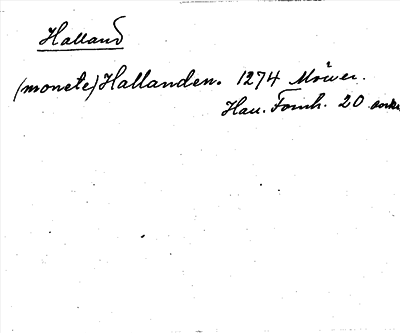 Halland
(monete) Hallanden. 1274 Möwer.
Hau. Fornh. 20